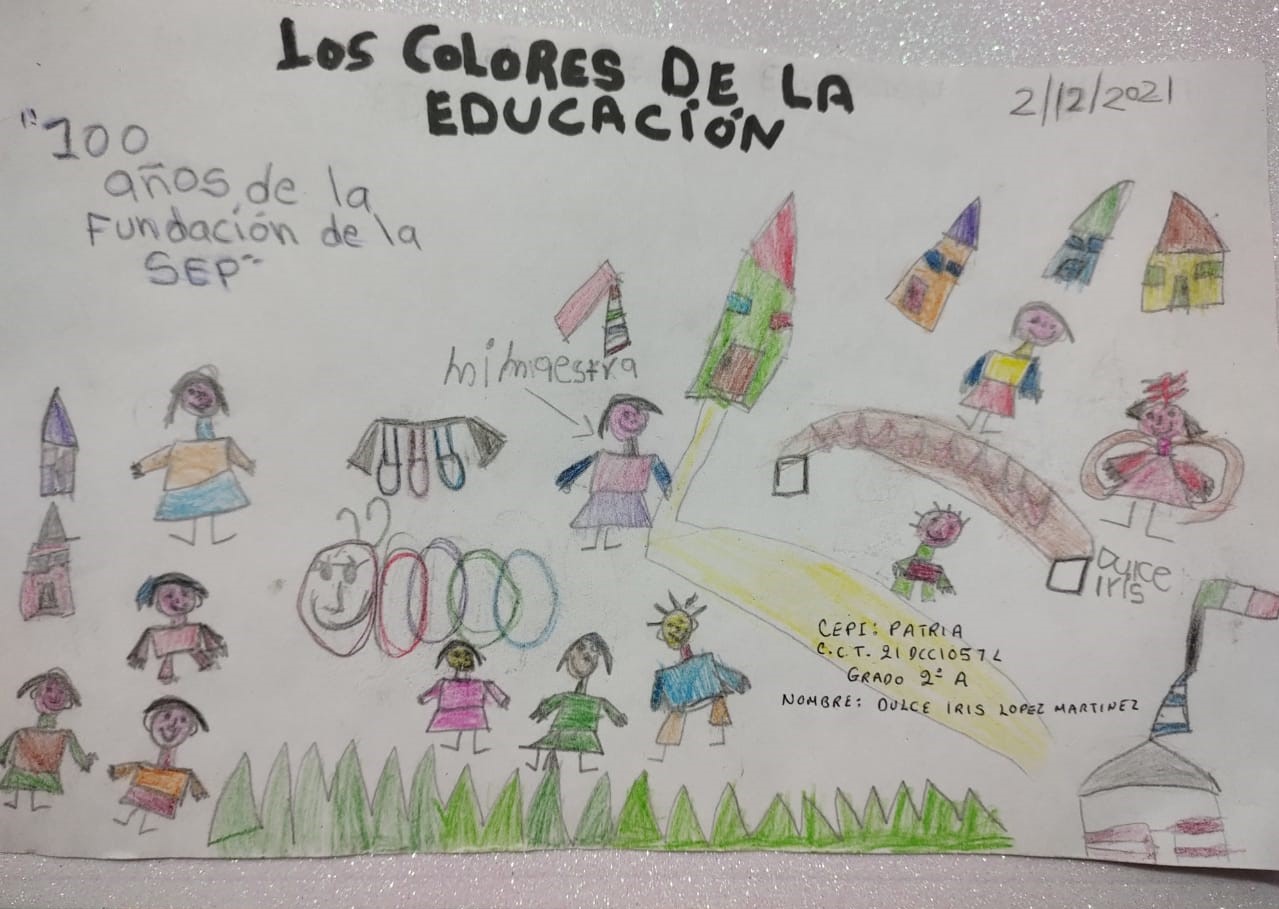 LOS COLORES DE LA
EDUCACIÓN
2/12/2021
"100
años de la
Fundación de la
SEP"
mi maestra
Dulce
iris
CEPI: PATRIA
C.C.T. 21DCC1057L
GRADO 2º A
NOMBRE: DULCE IRIS LOPEZ MARTINEZ